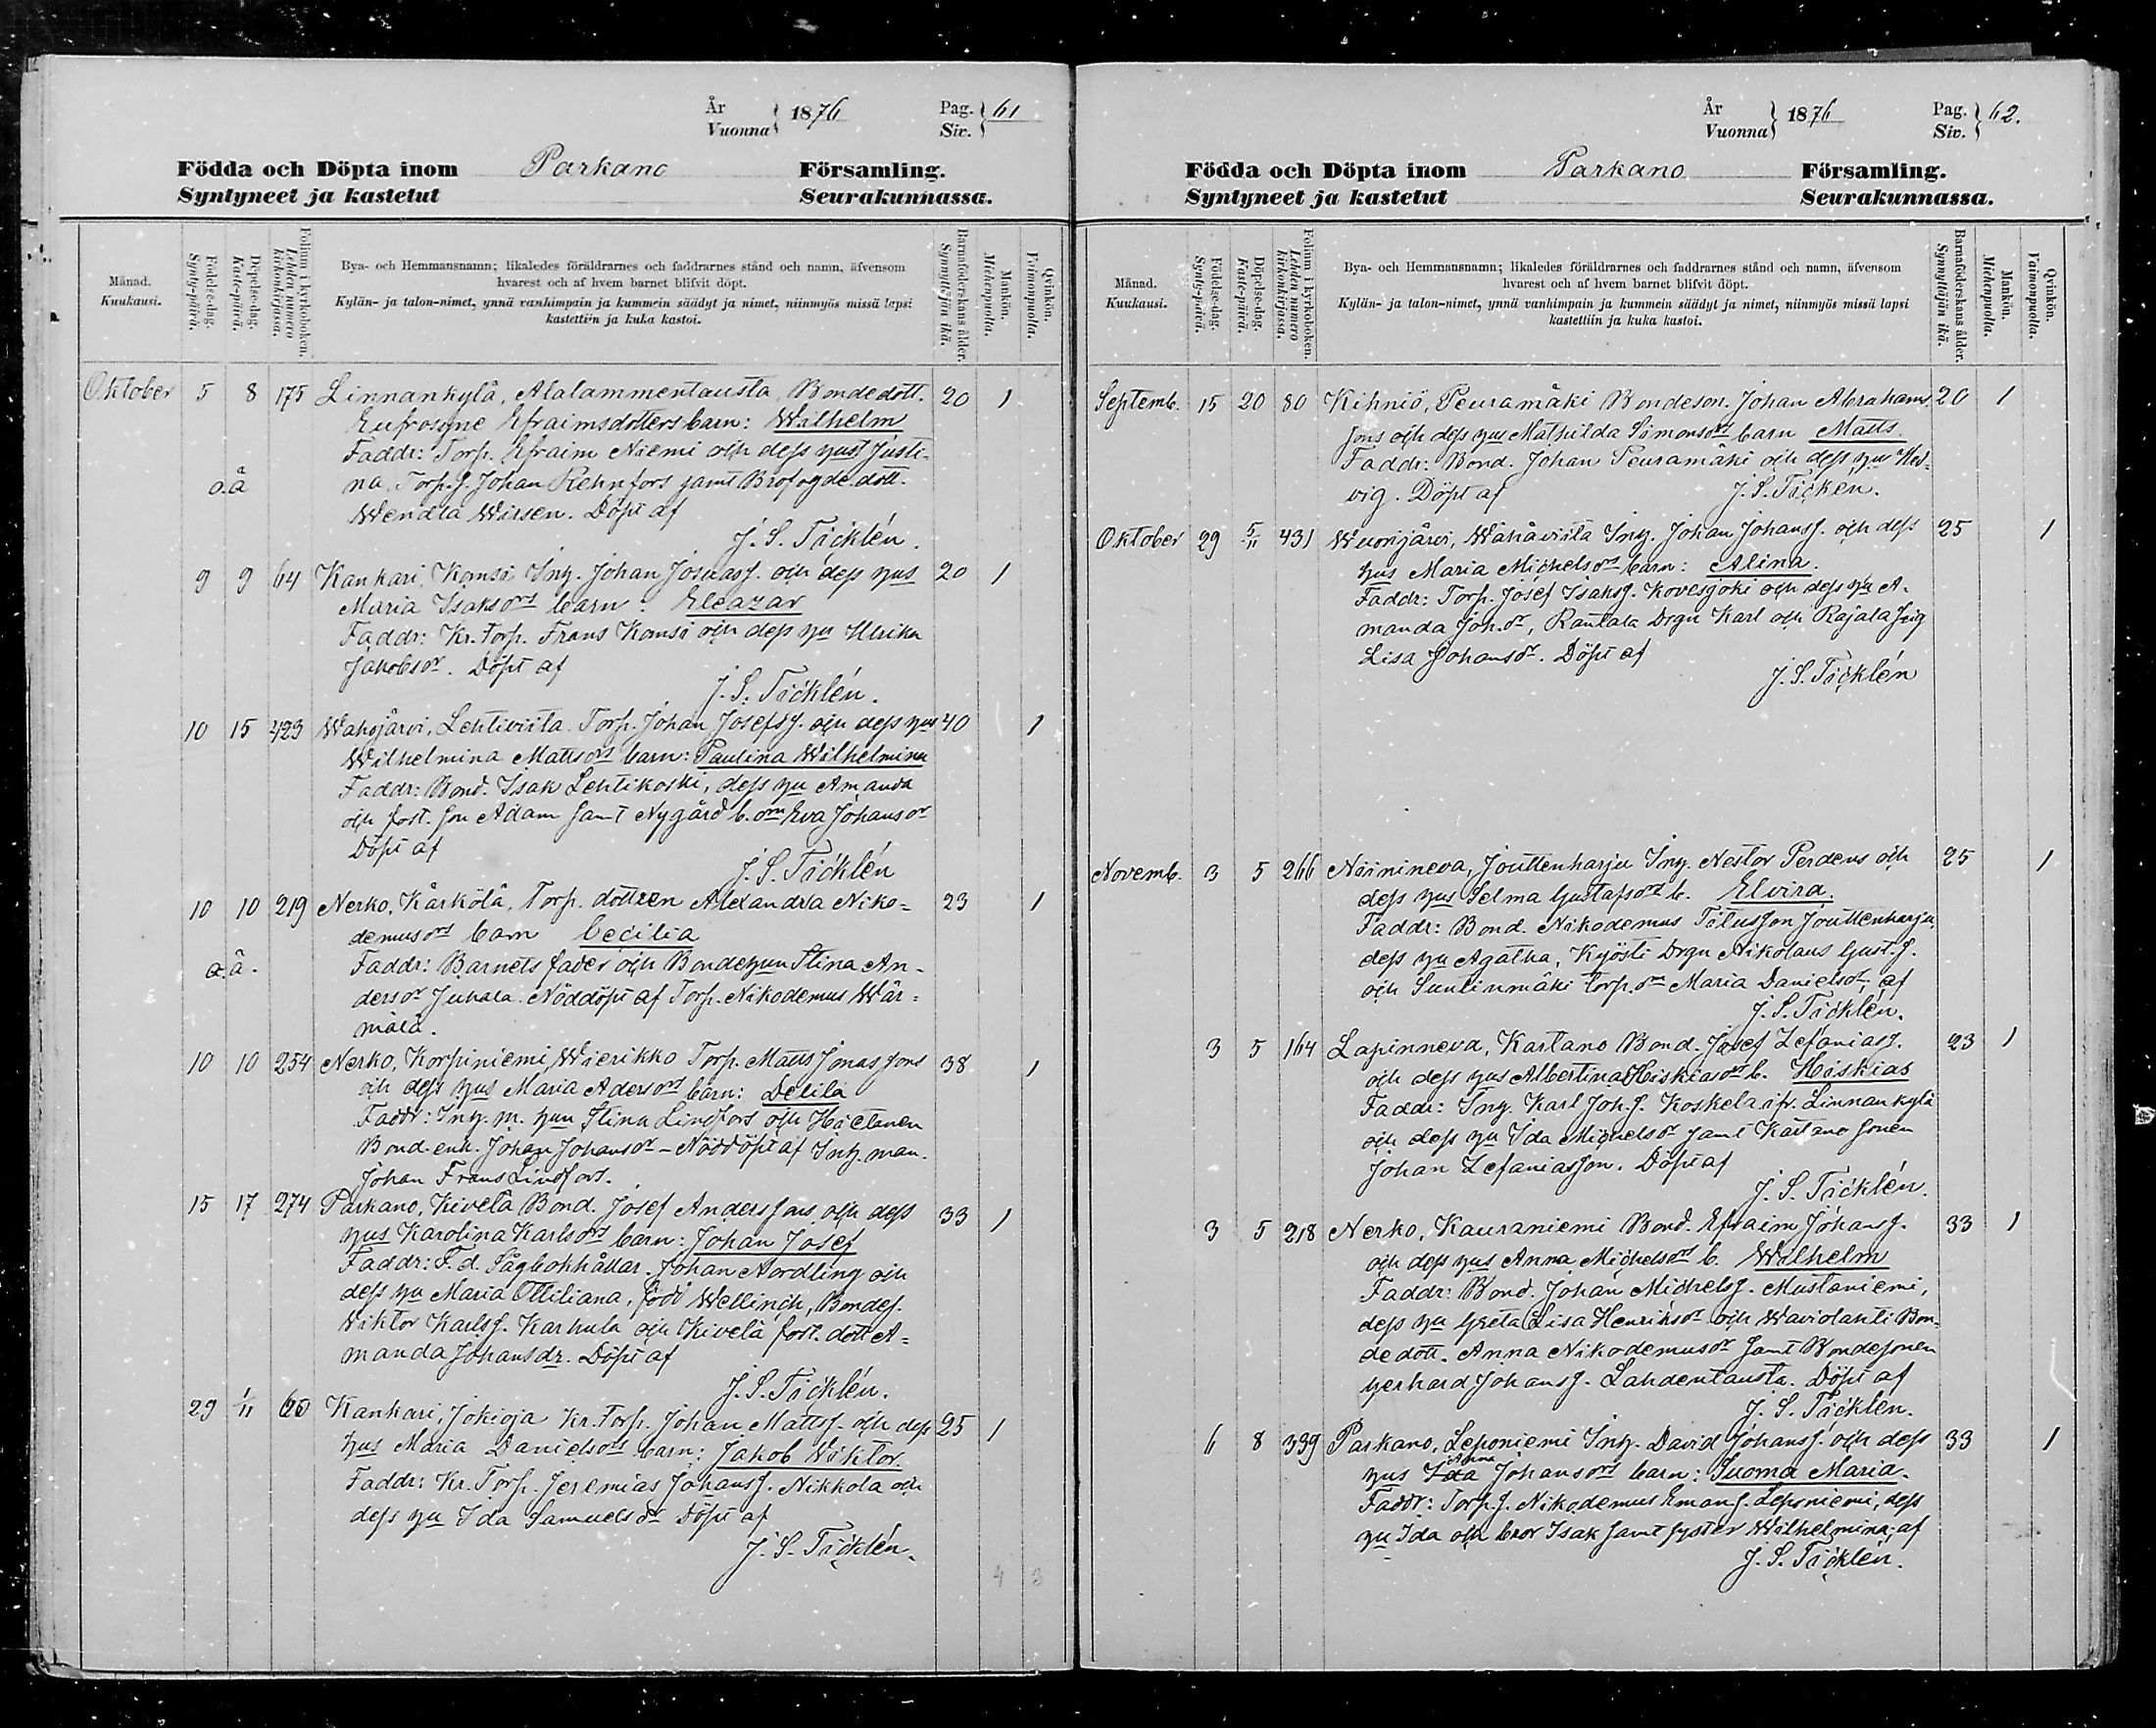 År
Vuonna } 1876
Pag.
Siv. } 61
Födda och Döpta inom Parkano Församling.
Syntyneet ja kastetut Seurakunnassa.
Månad.
Kuukausi.
Födelse-dag.
Synty-päivä.
Döpelse-dag.
Kaste-päivä.
Folium i kyrkoboken.
Lehden numero kirkonkirjassa.
Bya- och Hemmansnamn; likaledes föräldrarnes och faddrarnes stånd och namn, äfvensom
hvarest och af hvem barnet blifvit döpt.
Kylän- ja talon-nimet, ynnä vanhimpain ja kummein säädyt ja nimet, niinmyös missä lapsi
kastettiin ja kuka kastoi.
Barnaföderskans ålder.
Synnyttäjän ikä.
Mankön.
Miehenpuolta.
Qvinkön.
Vaimonpuolta.
Oktober 5 8 175 Linnankylä, Alalammentausta, Bondedott. 20 1
Eufrosyne Efraimsdotters barn: Wilhelm
Faddr: Torp. Efraim Niemi och dess hust Justi-
o.ä na, Torp.s. Johan Rehnfors samt Brofogde.dott.
Wendla Wirsen. Döpt af
J. S. Ticklén.
9 9 64 Kankari, Komsi Inh. Johan Josuass. och dess hus 20 1
Maria Isaksdrs barn: Eleazar
Faddr: Kr. Torp. Frans Komsi och dess hu Ulrika
Jakobsdr. Döpt af
J. S. Ticklén.
10 15 423 Wahojärvi, Lehtiviita Torp. Johan Josefss. och dess hus 40 1
Wilhelmina Mattsdrs barn: Paulina Wilhelmina
Faddr: Bond. Isak Lehtikoski, dess hu Amanda
och fost. son Adam samt Nygård b. Eva Johansdr
Döpt af
J. S. Ticklén
10 10 219 Nerko, Kärkölä, Torp. dottren Alexandra Niko- 23 1
demusdrs barn Cecilia
o.ä. Faddr: Barnets fader och Bondehun Stina An-
dersdr Juhala. Nöddöpt af Torp. Nikodemus Wär-
mälä.
10 10 254 Nerko, Korpiniemi, Wierikko Torp. Matts Jonassons 38 1
och dess hus Maria Adersdrs barn: Delila
Faddr: Inh. m. hun Stina Lindfors och Hietanen
Bond. enk. Johan Johansdr - Nöddöpt af Inh. man.
Johan Frans Lindfors.
15 17 274 Parkano, Kivelä Bond. Josef Anderssons och dess 33 1
hus Karolina Karlsdrs barn: Johan Josef
Faddr: F. d. Sågbokhållar. Johan Nordling och
dess hu Maria Ottiliana, född Wellinch, Bondes.
Wiktor Karlss. Karhula och Kivelä fost. dott A-
manda Johansdr. Döpt af
J. S. Ticklén.
29 1/11 60 Kankari, Jokioja Kr. Torp. Johan Mattss. och dess 25 1
hus Maria Danielsdrs barn: Jakob Wiktor
Faddr: Kr. Torp. Jeremias Johanss. Nikkola och
dess hu Ida Samuelsdr Döpt af
J. S. Ticklén.
4 3
År
Vuonna } 1876
Pag.
Siv. } 62.
Födda och Döpta inom Parkano Församling.
Syntyneet ja kastetut Seurakunnassa.
Månad.
Kuukausi.
Födelse-dag.
Synty-päivä.
Döpelse-dag.
Kaste-päivä.
Folium i kyrkoboken.
Lehden numero kirkonkirjassa.
Bya- och Hemmansnamn; likaledes föräldrarnes och faddrarnes stånd och namn, äfvensom
hvarest och af hvem barnet blifvit döpt.
Kylän- ja talon-nimet, ynnä vanhimpain ja kummein säädyt ja nimet, niinmyös missä lapsi
kastettiin ja kuka kastoi.
Barnaföderskans ålder.
Synnyttäjän ikä.
Mankön.
Miehenpuolta.
Qvinkön.
Vaimonpuolta.
Septemb. 15 20 80 Kihniö, Peuramäki Bondeson. Johan Abrahams 20 1
sons och dess hus Mathilda Simonsdrs barn Matts
Faddr: Bond. Johan Peuramäki och dess hu Hed-
vig. Döpt af J. S. Ticken.
Oktober 29 5/11 431 Wuorijärvi, Wähäviita Inh. Johan Johanss. och dess 25 1
hus Maria Michelsdrs barn: Alina.
Faddr: Torp. Josef Isakss. Kovesjoki och dess hu A-
manda Joh.dr, Rantala Drgn Karl och Rajala Pig
Lisa Johansdr. Döpt af
J. S. Ticklén
Novemb. 3 5 266 Niinineva, Jouttenharju Inh. Nestor Perdens och 25 1
dess hus Selma Gustafsdrs b. Elvira.
Faddr: Bond. Nikodemus Titusson Jouttenharju,
dess hu Agatha, Kyösti Drgn Nikolaus Gust.s.
och Suulinmäki torp. Maria Danielsdr, af
J. S. Ticklén.
3 5 164 Lapinneva, Kartano Bond. Josef Zefaniass. 23 1
och dess hus Albertina Hiskiasdrs b. Hiskias
Faddr: Inh. Karl Joh.s. Koskela ifr. Linnankylä
och dess hu Ida Michelsdr samt Kartano sonen
Johan Zefaniasson. Döpt af
J. S. Ticklén.
3 5 218 Nerko, Kauraniemi Bond. Efraim Johanss. 33 1
och dess hus Anna Michelsdrs b. Wilhelm
Faddr: Bond. Johan Michelss. Mustaniemi,
dess hu Greta Lisa Henriksdr och Waviolahti Bon-
de dott. Anna Nikodemusdr samt Bondesonen
Gerhard Johanss. Lahdentausta. Döpt af
J. S. Ticklén.
6 8 339 Parkano, Leponiemi Inh. David Johanss. och dess 33 1
hus Ida Anna Johansdrs barn: Suoma Maria.
Faddr: Torp.s. Nikodemus Eman.s. Leponiemi, dess
hu Ida och bror Isak samt syster Wilhelmina; af
J. S. Ticklén.